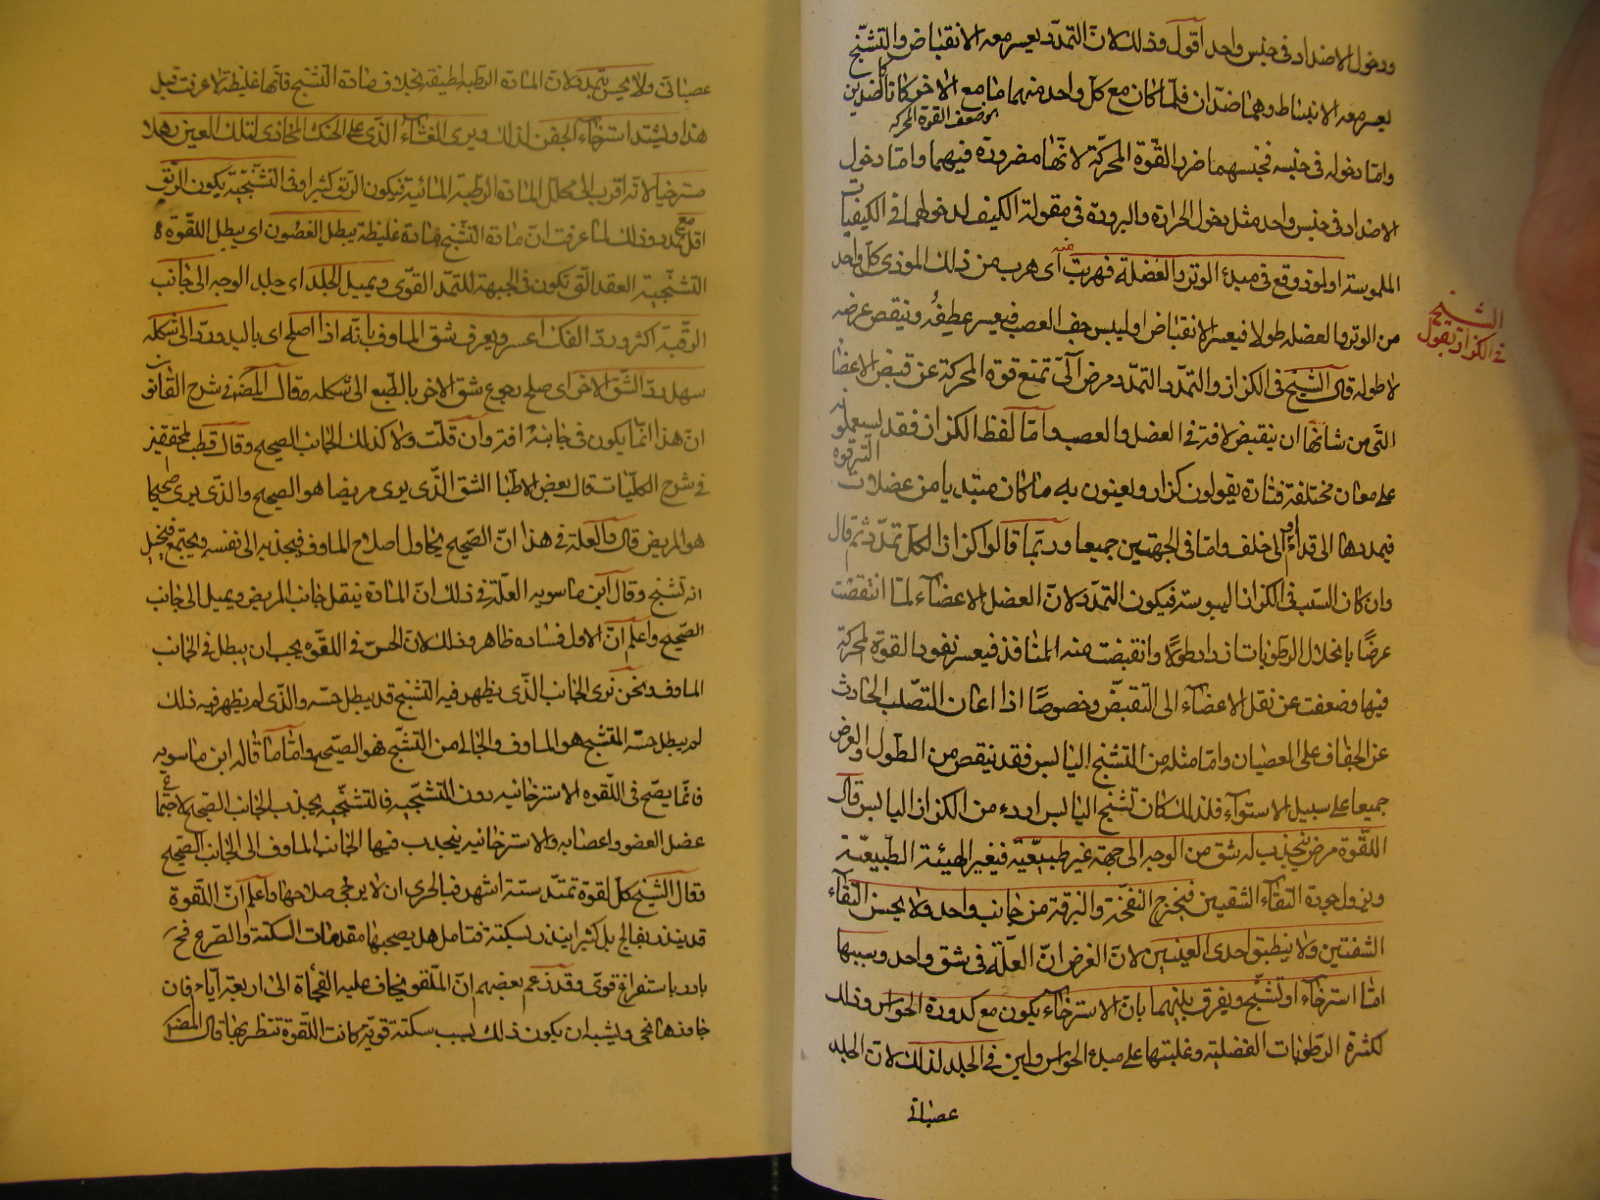 ودخول الاضداد في جنس واحد اقول وذلك لان التمدد يعسر معه الانقباض والتشنج
يعسر معه الانبساط وهما ضدان فلما كان مع كل واحد منهما ما مع الاخر كانا كالضدين
وضعف القوة المحركة
واما دخوله في جنسه فجنسهما ضرر القوة المحركة لانها مضرورة فيهما واما دخول
الاضداد في جنس واحد مثل دخول الحرارة والبرودة في مقولة الكيف لدخولهما في الكيفيات
الملموسة او لموذ وقع في مبدء الوتر والعضلة فهربت منه اى هرب من ذلك الموذى كل واحد
من الوتر والعضله طولا فيعسر الانقباض او ليبس جفف العصب فيعسر عطفه وينقص عرضه
لا طوله قال الشيخ في الكزاز والتمدد التمدد مرض آلى تمنع قوة المحركة عن قبض الاعضاء
الشيخ
في الكزاز يقول
التى من شانها ان ينقبض لافة في العضل والعصب واما لفظ الكزاز فقد يستعملونه
على معان مختلفة فتارة يقولون كزاز ويعنون به ما كان مبتديا من عضلات الترقوة
فيمددها الى قدام او الى خلف واما في الجهتين جميعا وربما قالوا كزاز الكل تمدد ثم قال
وان كان السبب في الكزاز اليبوسة فيكون التمدد لان العضل الاعضاء لما انتقصت
عرضًا بانحلال الرطوبات ازداد طولا وانقبضت منه المنافذ فيعسر نفوذ القوة المحركة
فيها وضعفت عن نقل الاعضاء الى التقبض وخصوصًا اذا اعان التصلب الحادث
عن الجفاف على العصيان واما مثله من التشنج اليابس فقد ينقص من الطول والعرض
جميعا على سبيل الاستواء فلذلك كان تشنج اليابس اردء من الكزاز اليابس قال
اللقوة مرض ينجذب له شق من الوجه الى جهة غير طبيعية فيغير الهيئة الطبيعية
ويزول جودة التقاء الشفتين فيخرج النفخة والبزقة من جانب واحد ولا يحسن التقاء
الشفتين ولا ينطبق احدى العينين لان الغرض ان العلة في شق واحد وسببها
اما استرخاء او تشنج ويفرق بينهما بان الاسترخاء يكون مع كدورة الحواس وذلك
لكثرة الرطوبات الفضلية وغلبتها على مبدء الحواس ولين في الجلد لذلك لان الجلد
عصباني
عصبانى ولا يحس بتمدد لان المادة الرطبة لطيفة بخلاف مادة التشنج فانها غليظة لما عرفت قبل
هذا ويشتد استرخاء الجفن لذلك ويرى الغشاء الذى على الحنك المحاذى لتلك العين رهلا
مسترخيا لانه اقرب الى محلل المادة الرطبة المائية فيكون الريق كثيرا وفي التشنجية يكون الريق
اقل مع تمدد وذلك لما عرفت ان مادة التشنج مادة غليظة يبطل الغضون اى يبطل اللقوة
التشنجية العقد التى تكون في الجبهة للتمدد القوى ويميل الجلد اى جلد الوجه الى جانب
الرقبة اكثر ورد الفك اعسر ويعرف شق الماوف بانه اذا اصلح اى باليد ورد الى شكله
سهل رد الشق الاخر اى صلح رجوع شق الاخر بالطبع الى شكله وقال المص في شرح القانون
ان هذا انما يكون في جانبه افة وان قلت ولا كذلك الجانب الصحيح وقال قطب المحققين
في شرح الكليات قال بعض الاطبا الشق الذى يرى مريضا هو الصحيح والذى يرى صحيحا
هو المريض قال والعلة في هذا ان الصحيح يحاول اصلاح الماوف فيجذبه الى نفسه ويجتمع فيخيل
انه تشنج وقال ابن ماسويه العلة في ذلك ان المادة ينقل جانب المريض ويميل الى جانب
الصحيح واعلم ان الاول فساده ظاهر وذلك لان الحس في اللقوه يجب ان يبطل في الجانب
الماوف ونحن نرى الجانب الذى يظهر فيه التشنج قد يبطل حسه والذى لم يظهر فيه ذلك
لم يبطل حسه المتشنج هو الماوف والخالي من التشنج هو الصحيح واما ما قاله ابن ماسويه
فانما يصح في اللقوه الاسترخائية دون التشنجية فالتشنجية يجذب الجانب الصحيح لاجتماع
عضل العضو واعصابه والاسترخائيه ينجذب فيها الجانب الماوف الى الجانب الصحيح
وقال الشيخ كل لقوة تمتد ستة اشهر فبالحرى ان لا يرجى صلاحها واعلم ان اللقوة
قد ينذر بفالج بل كثيرا ينذر بسكتة فتامل هل يصحبها مقدمات السكتة والصرع فح
بادر باستفراغ قوى وقد زعم بعضهم ان الملقو يخاف عليه الفجأة الى اربعة ايام فان
جاوزها نجى ويشبه ان يكون ذلك بسبب سكتة قوية كانت اللقوة تنظر بها قال المص